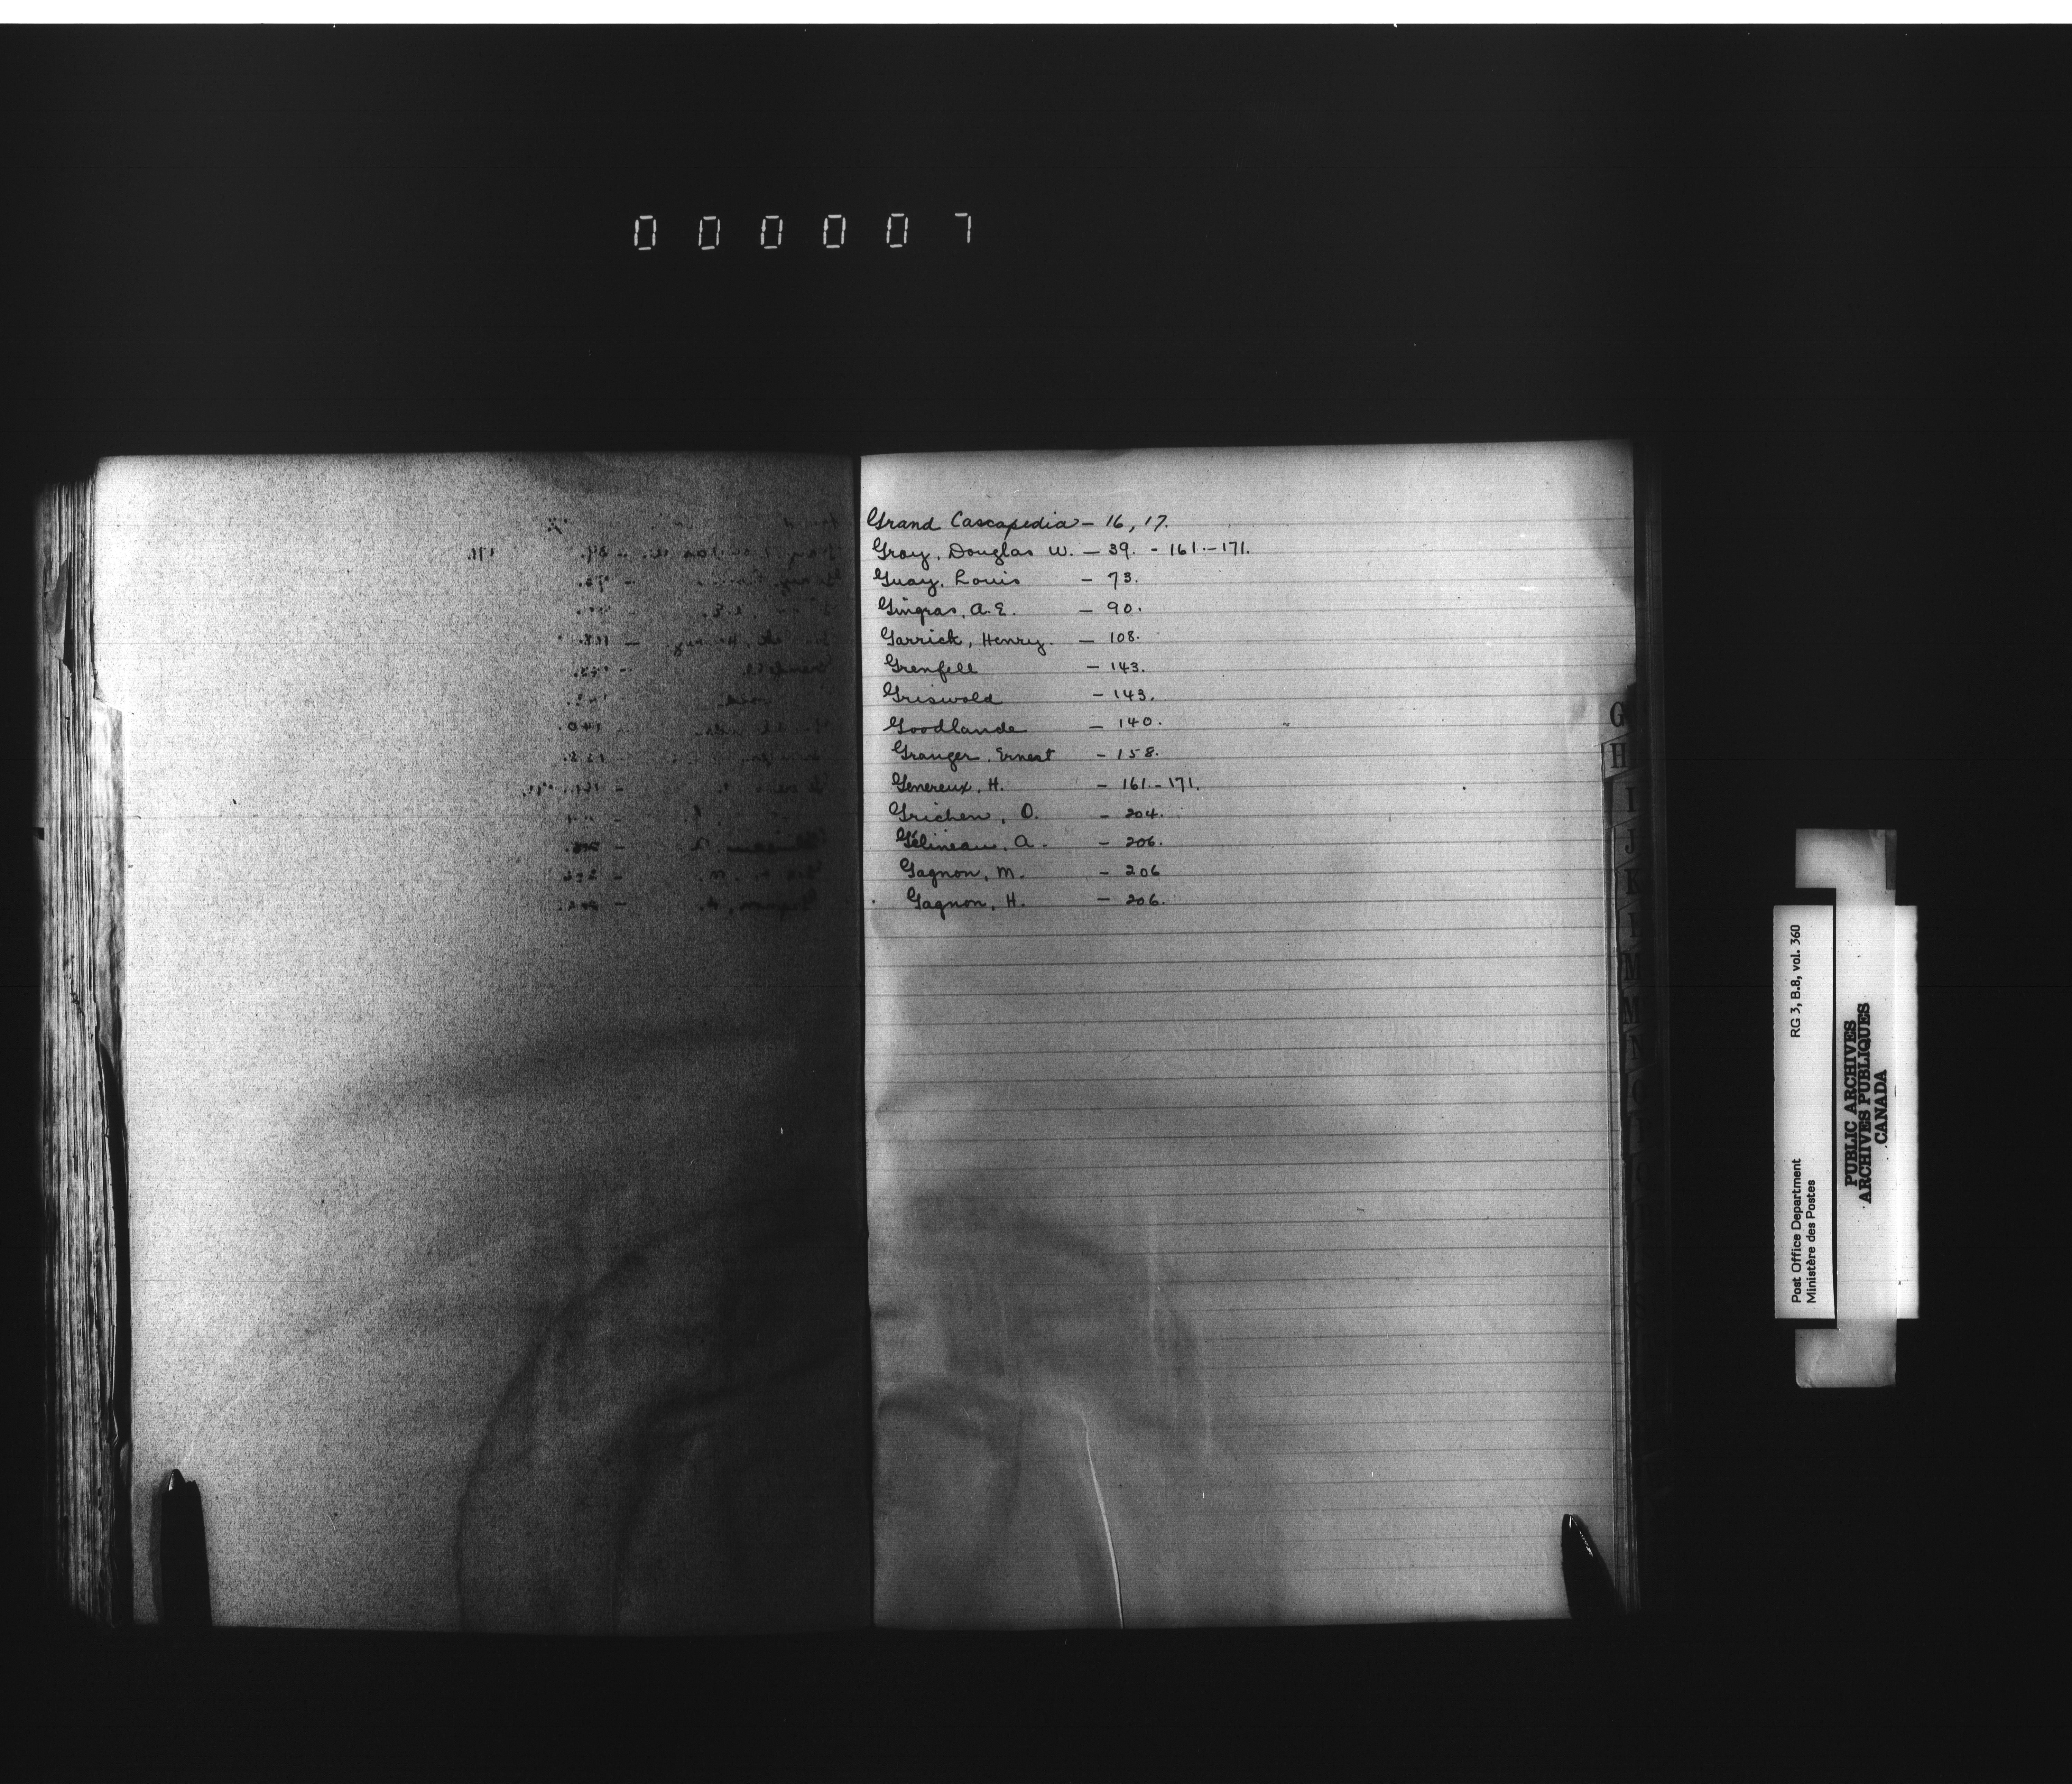 000007
Grand Cascapedia - 16, 17.
Gray, Douglas W. - 39. - 161.-171.
Guay, Louis - 73.
Gingras, A.E. - 90.
Garrick, Henry. - 108.
Grenfell - 143.
Griswold - 143.
Goodlands - 140.
Granger, Ernest - 158.
Genereux, H. - 161.-171.
Grichen, O. - 204.
Gélineau, A. - 206.
Gagnon, M. - 206
Gagnon, H. - 206.
G
H
I
J
K
Post Office Department RG 3, B.8, vol. 360
Ministère des Postes
PUBLIC ARCHIVES
ARCHIVES PUBLIQUES
CANADA